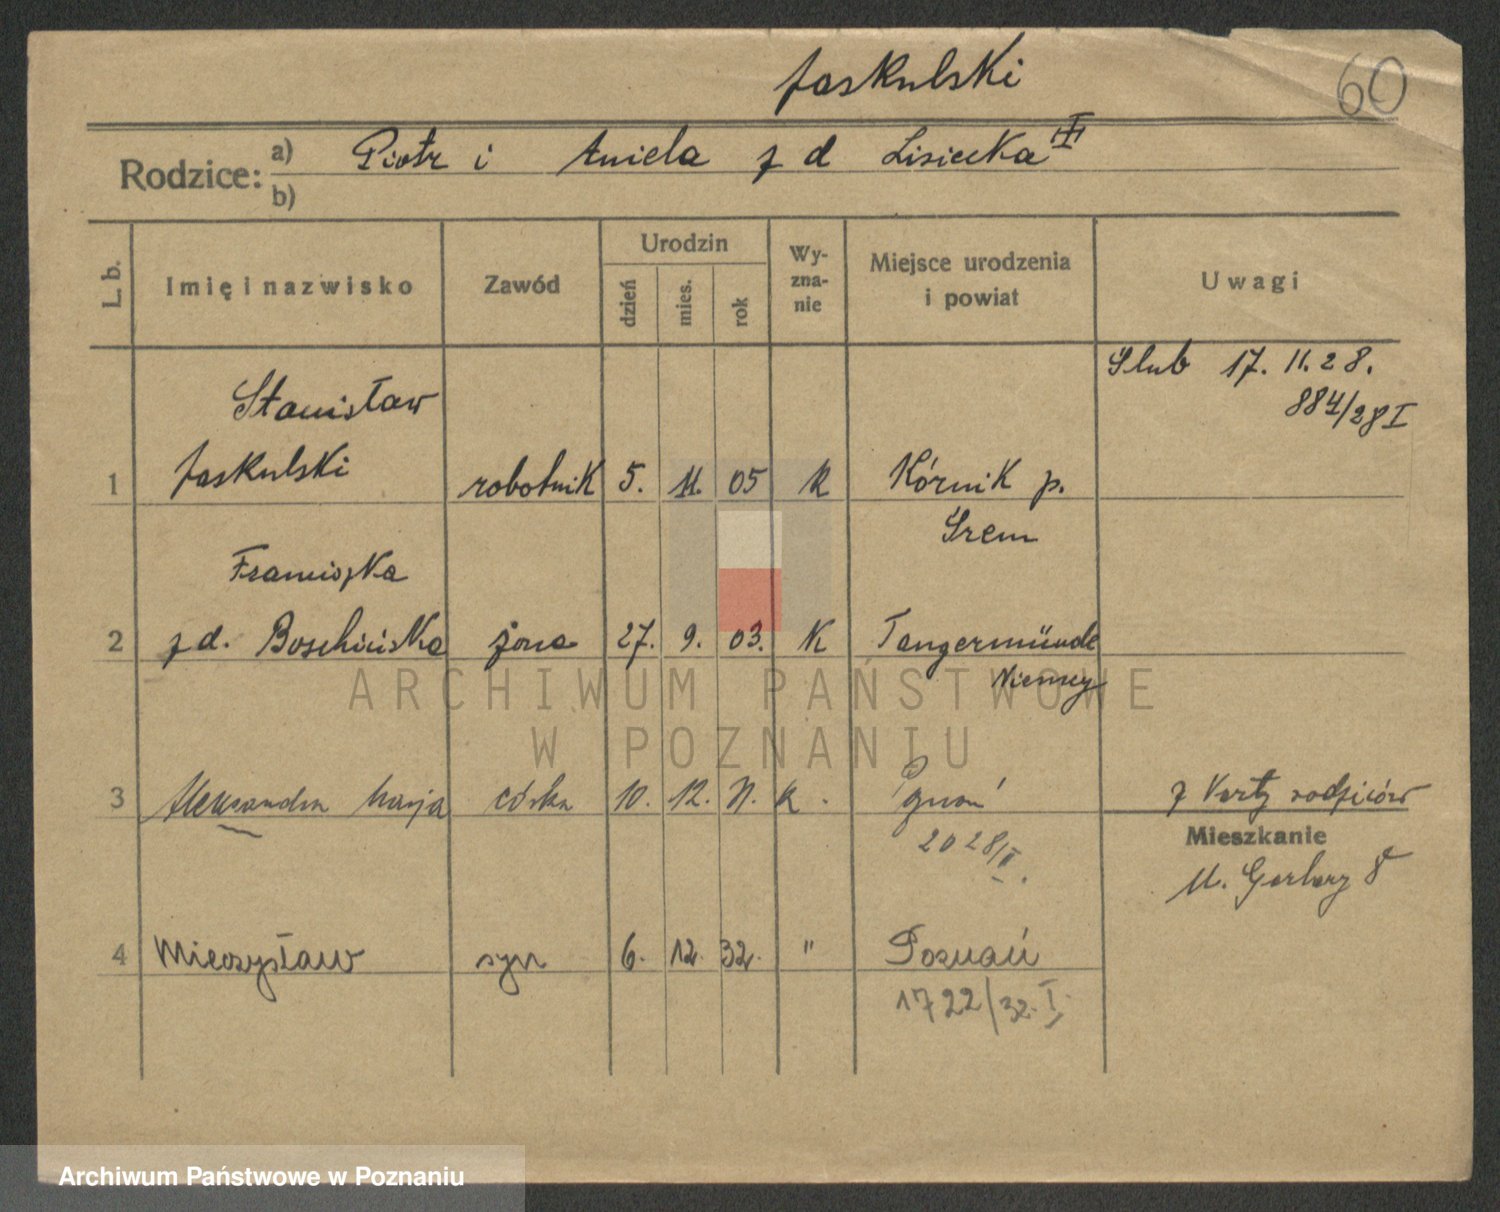 Jaskulski
60
Rodzice: a) Piotr i Aniela z d Lisiecka
b)
L. b.
Imię i nazwisko
Zawód
Urodzin
dzień
mies.
rok
Wy-
zna-
nie
Miejsce urodzenia
i powiat
Uwagi
Slub 17. 11. 28.
884/28 I
Stanisław
1 Jaskulski robotnik 5. 11. 05 K Kórnik p.
Srem
Franciszka
2 z d. żona 27. 9. 03. K Tangermünde
Niemcy
3 Aleksandra Marja córka 10. 12. K. z Karty rodziców
2028/II.
Mieszkanie
Garbary 8
4 Mieczysław syn 6. 12. 32. " Poznań
1722/32. I.
ARCHIWUM PAŃSTWOWE
W POZNANIU
Archiwum Państwowe w Poznaniu